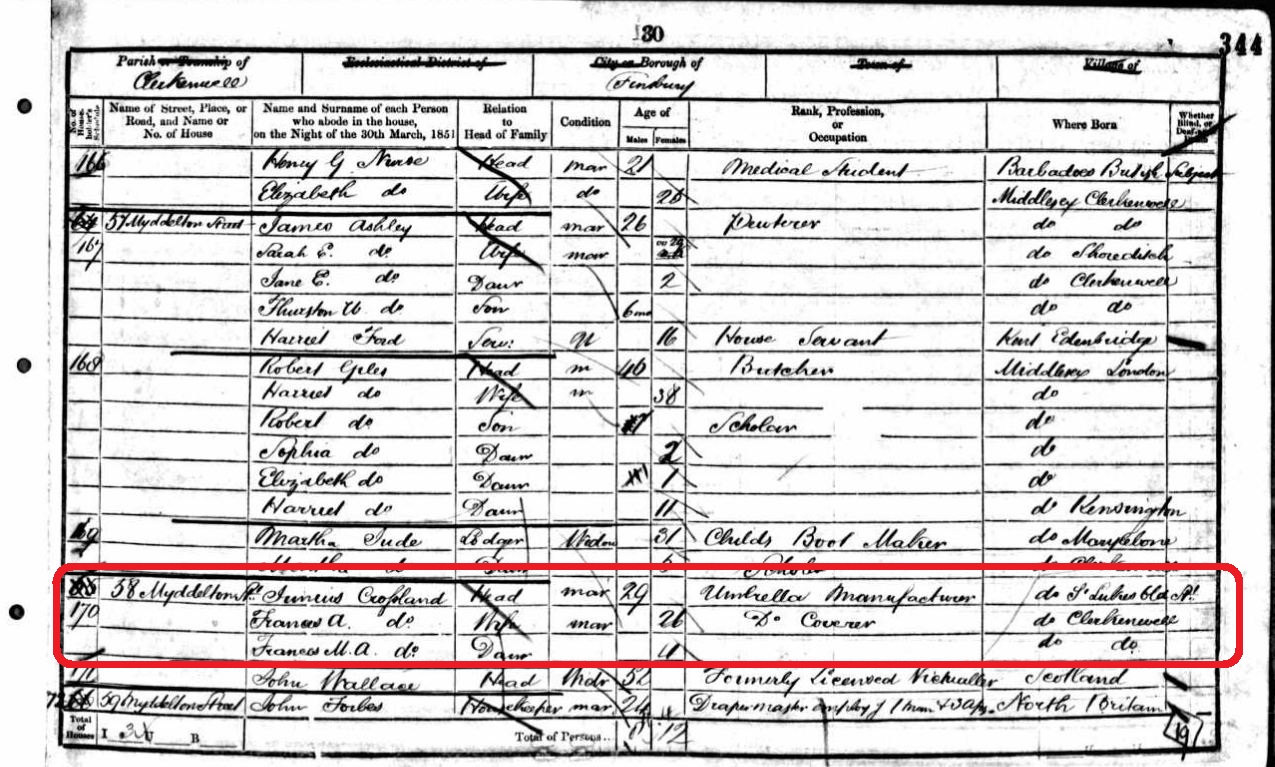 30
344
Parish or Township of Ecclesiastical District of City or Borough of Town of Village of
Clerkenwell Finsbury
No. of House- holder's Schedule Name of Street, Place, or Road, and Name or No. of House Name and Surname of each Person who abode in the house, on the Night of the 30th March, 1851 Relation to Head of Family Condition Age of Males Females Rank, Profession, or Occupation Where Born Whether Blind, or Deaf-and-Dumb
166 Henry G. Nurse Head mar 21 Medical Student Barbadoes British Subject
Elizabeth do Wife do Middlesex Clerkenwell
57 Myddelton Street James Ashley Head mar 26 Pewterer do do
167 Sarah E. do Wife mar do Shoreditch
Jane E. do Daur 2 do Clerkenwell
Thurston W. do Son 6mo do do
Harriet Ford Serv: 16 House Servant Kent Edenbridge
168 Robert Giles Head m 46 Butcher Middlesex London
Harriet do Wife m 38 do
Robert do Son 7 Scholar do
Sophia do Daur 2 do
Elizabeth do Daur 1 do
Harriet do Daur 11 do Kensington
169 Martha Jude Lodger Widow 31 Childs Boot Maker do Marylebone
Martha do Daur 5 Scholar do Clerkenwell
58 Myddelton St. Junius Crossland Head mar 29 Umbrella Manufacturer do St Lukes Old St.
170 Frances A. do Wife mar 26 Do Coverer do Clerkenwell
Frances M.A. do Daur 4 do do
171 John Wallace Head Widr 52 Formerly Licensed Victualler Scotland
59 Myddelton Street John Forbes Housekeeper mar 24 Draper master employ 1 man & 3 Aps. North Britain
Total of Houses I 3 U B Total of Persons.. 12
19